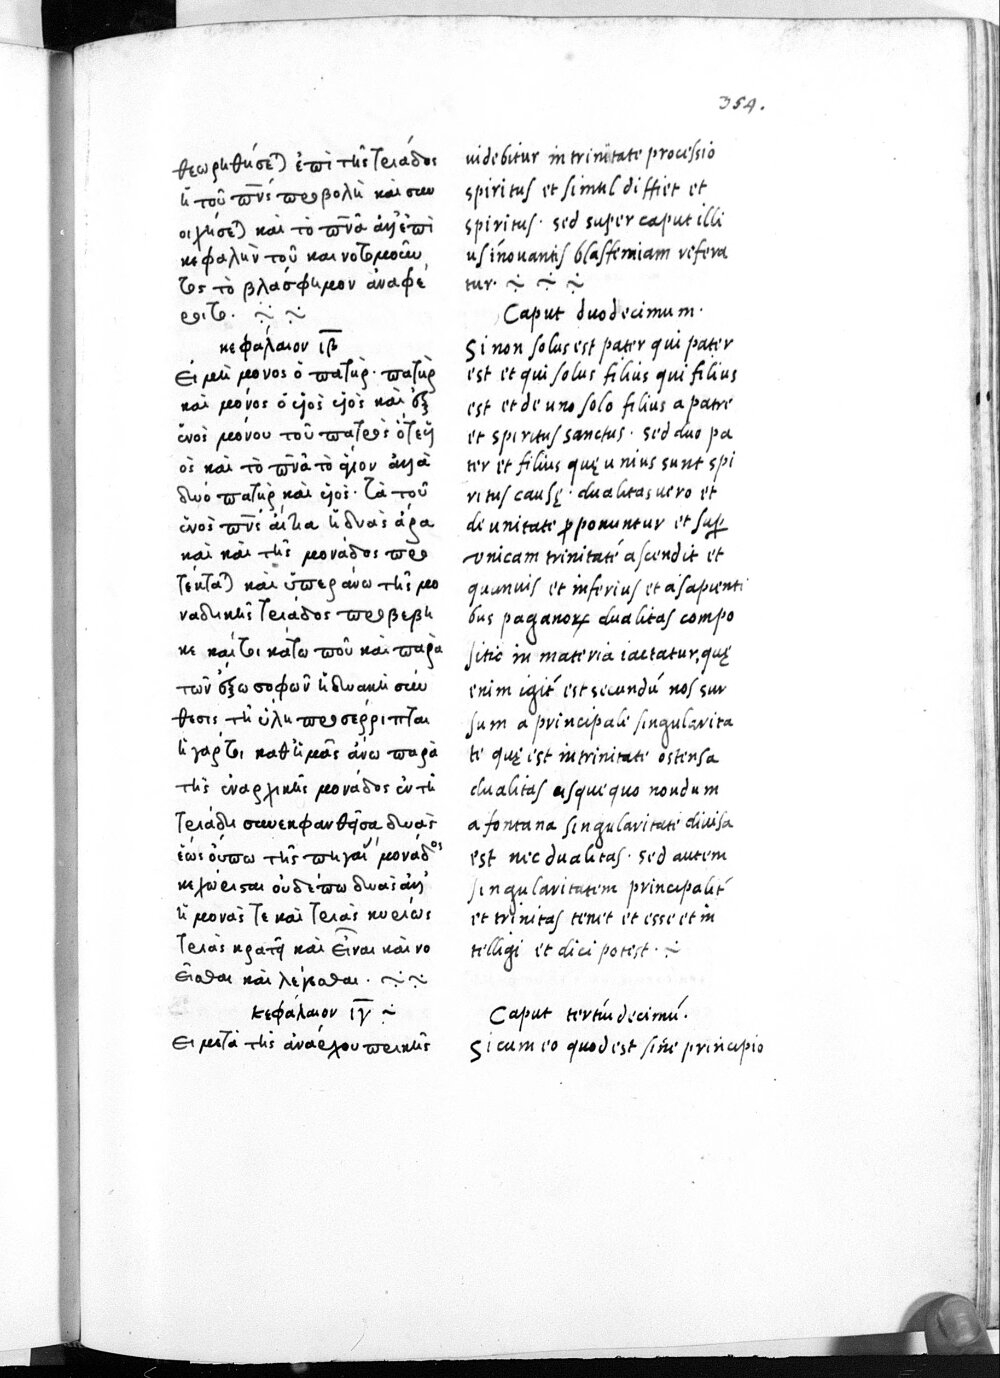 354.
θεωρηθήσεται ἐπὶ τῆς τριάδος
ἡ τοῦ πνς προβολὴ καὶ συν
οιχήσεται καὶ τὸ πνα
κεφαλὴν τοῦ καινοτομοῦν
τος τὸ βλάσφημον ἀναφέ
ροιτο.
κεφάλαιον ιβ
Εἰ μὴ μόνος ὁ πατὴρ. πατὴρ
καὶ μόνος ὁ υἱὸς υἱὸς καὶ ἐξ
ἑνὸς μόνου τοῦ πατρὸς ὅ τε υἱ
ὸς καὶ τὸ πνα τὸ ἅγιον ἀλλὰ
δύο πατὴρ καὶ υἱὸς. τὰ τοῦ
ἑνὸς πνς αἴτια ἡ δυὰς ἄρα
καὶ καὶ τῆς μονάδος προ
τέκται καὶ ὑπεράνω τῆς μο
ναδικῆς τριάδος προβεβη
κε καί τοι κάτω που καὶ παρὰ
τῶν ἔξω σοφῶν ἡ δυαδικὴ σύν
θεσις τῇ ὕλῃ προσέρριπται
ἡ γάρ τοι καθ ἡμᾶς ἄνω παρὰ
τῆς ἐναρχικῆς μονάδος ἐν τῇ
τριάδι συνεκφανθεῖσα δυὰς
ἕως οὔπω τῆς πηγαί μονάδος
κεχώρισται οὐδέπω δυὰς ἀλλ
ἡ μονὰς τε καὶ τριὰς κυρίως
τριὰς κρατεῖ καὶ εἶναι καὶ νο
εῖσθαι καὶ λέγεσθαι.
κεφάλαιον ιγ
Εἰ μετὰ τῆς ἀνάρχου πρικῆς
uidebitur in trinitate processio
spiritus et simul diffiet et
spiritus. sed super caput illi
us inouantis blasfemiam refera
tur.
Caput duodecimum.
Si non solus est pater qui pater
est et qui solus filius qui filius
est et de uno solo filius a patre
et spiritus sanctus. sed duo pa
ter et filius quę unius sunt spi
ritus causę. dualitas uero et
de unitate pponuntur et sup
unicam trinitatē ascendit et
quanuis et inferius et a sapienti
bus paganorꝝ dualitas compo
sitio in materia iactatur, quę
enim igit est secundū nos sur
sum a principale singularita
te quę est in trinitate ostensa
dualitas usque quo nondum
a fontana singularitate diuisa
est nec dualitas. sed autem
singularitatem principalit
et trinitas tenet et esse et in
telligi et dici potest.
Caput tertiū decimū.
Si cum eo quod est sine principio